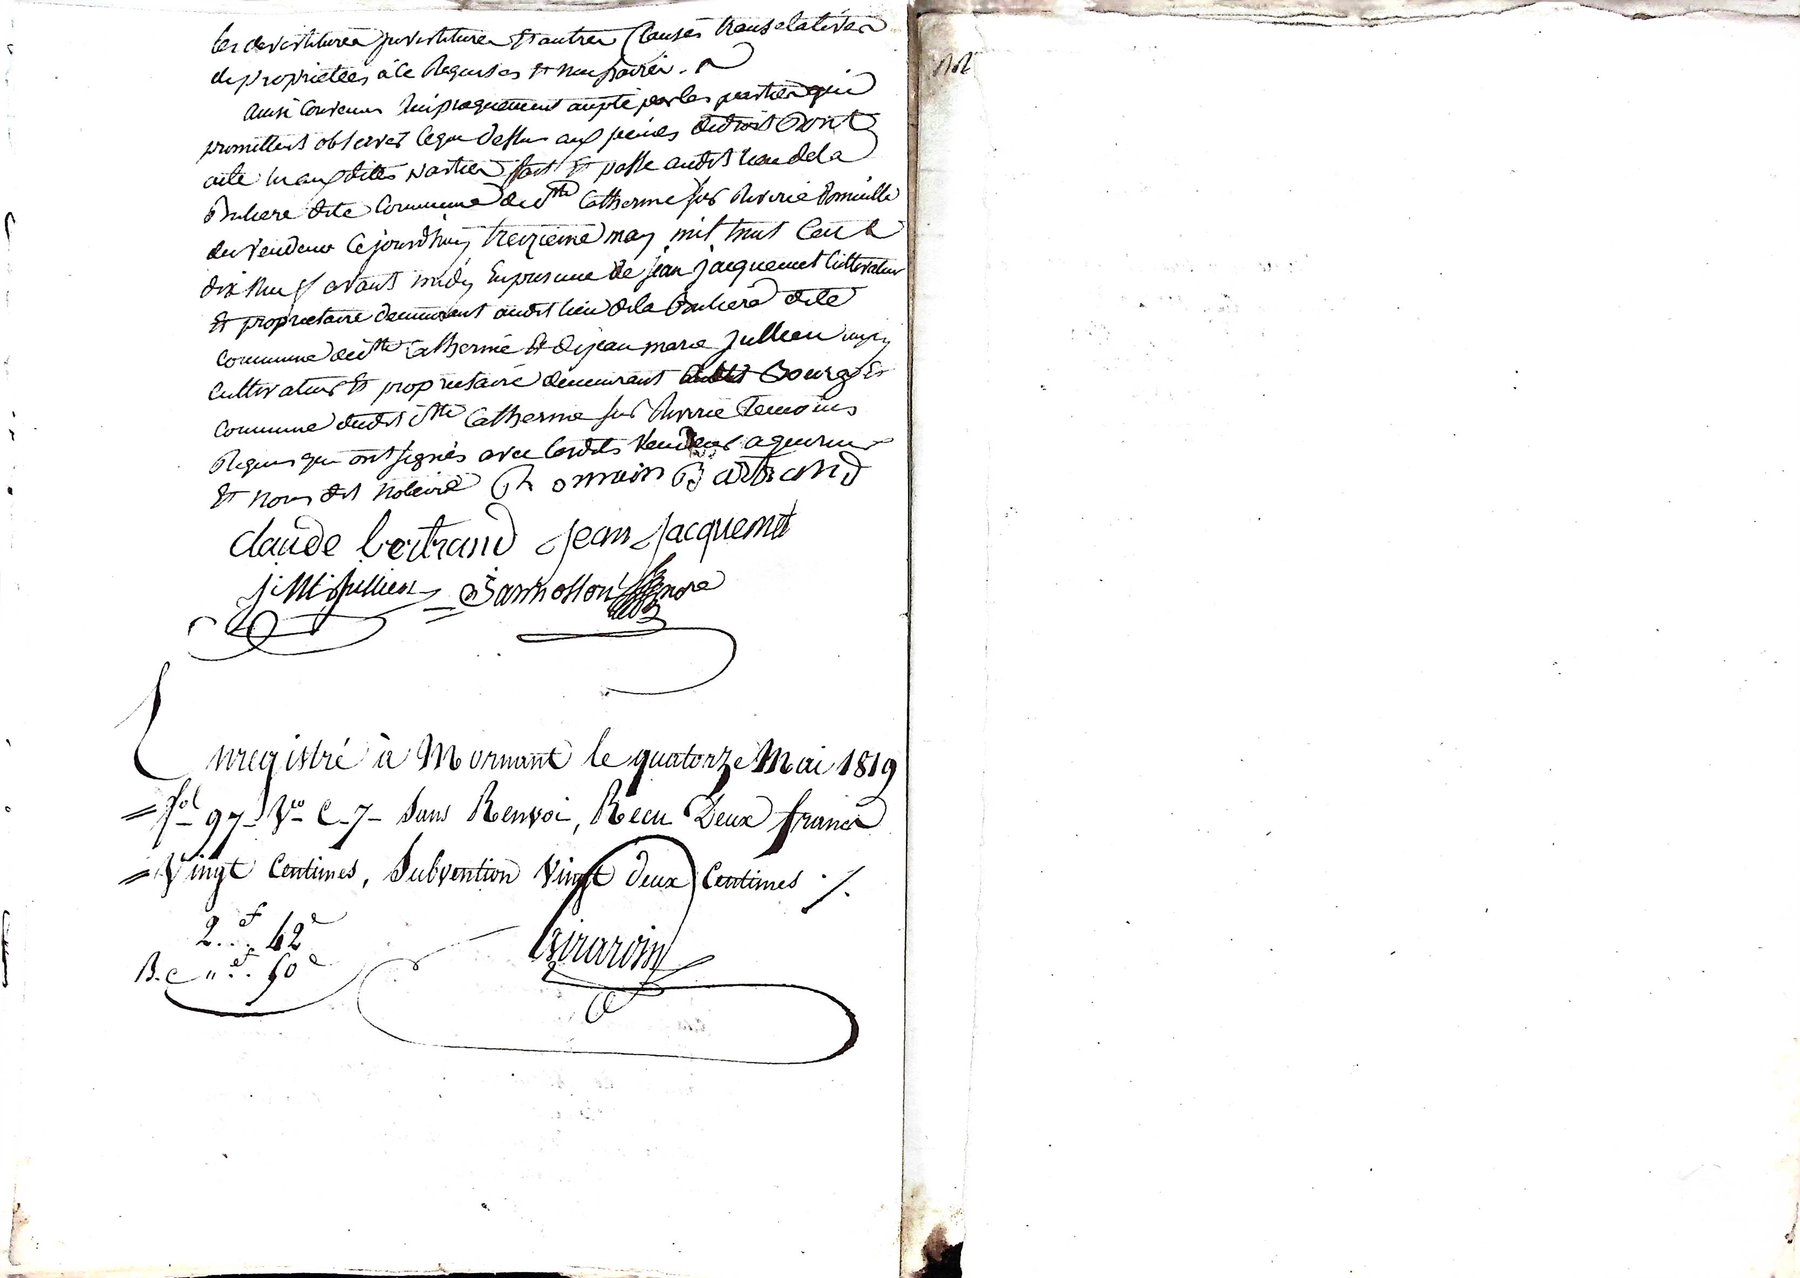 les devestitures investitures et autres clauses translatives
de proprietées à ce requises et necessaires.
ainsi convenu reciproquement accepté par les parties qui
promettent observer ce que dessus aux peines de droit Dont
acte lu auxdittes parties fait et passé audit lieu de la
dite Commune de Ste Catherine sur Riverie Domicille
du vendeur ce jourd'huy treizieme may mil huit Cent
dix neuf avant midy En presence de jean jacquemet Cultivateur
et proprietaire demeurant audit lieu de la dite
commune de Ste Catherine et de jean marie jullien
Cultivateur et proprietaire demeurant Bourg et
commune dudit Ste Catherine sur Riverie Temoins
Requis qui ont signés avec lesdits Vendeur aquereur
et nous dit notaire Romain
claude bertrand jean jacquemet
j: M: jullien nore
Enregistré à Mornant le quatorze Mai 1819
fol 97 Vco C 7 Sans Renvoi, Recu Deux francs
Vingt Centimes, Subvention Vingt deux Centimes ./.
2.f. 42c
Girardin
B. c "f. 50c